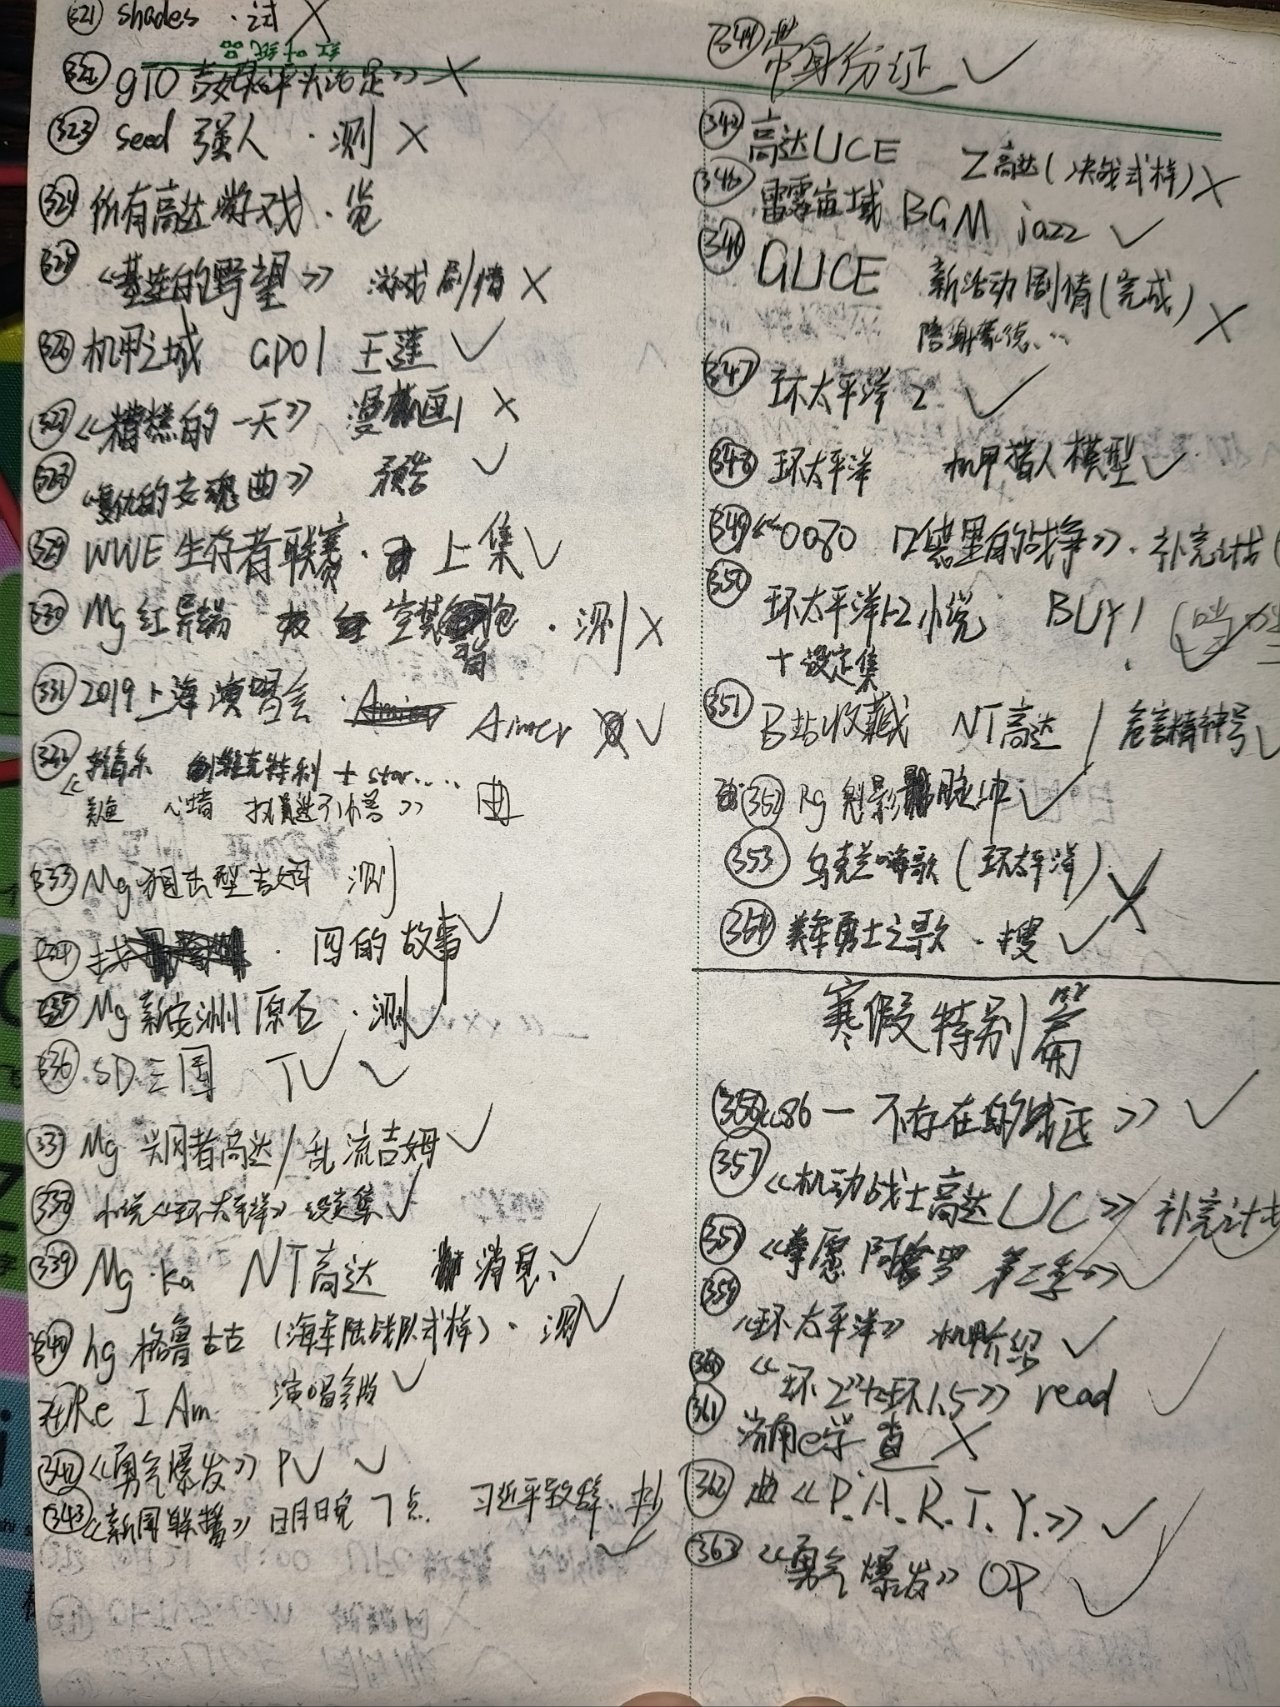 321 shades ·试 X
红叶纸品
322 GTO X
323 seed 强人 ·测 X
324 所有高达游戏·览
325 《基连的野望》 游戏剧情 X
326 机甲之城 GP01 王莲 ✓
327 《糟糕的一天》 漫画 X
328 《复仇的安魂曲》 预告 ✓
329 WWE 生存者联赛· 上集 ✓
330 Mg 红异端 ·测 X
331 2019上海演唱会 Aimer ✓
332 + star....
》 曲
333 Mg 狙击型吉姆 测
334 找 · 四的故事 ✓
335 Mg 新安洲 原石 ·测 ✓
336 SD三国 TV ✓
337 Mg 高达/乱流吉姆 ✓
338 小说《环太平洋》设定集 ✓
339 Mg ·ka NT高达 消息 ✓
340 hg 格鲁古古 (海军陆战队式样)·测 ✓
341 Re I Am 演唱会版 ✓
342 《勇气爆发》 PV ✓
343 《新闻联播》 明日晚7点 习近平致辞·抄 ✓
344 带身份证 ✓
345 高达UCE Z高达(决战式样) X
346 雷霆宙域 BGM jazz ✓
346 GUCE 新活动剧情(完成) X
347 环太平洋2 ✓
348 环太平洋 机甲猎人模型 ✓
349 《0080 口袋里的战争》·补完计划
350 环太平洋1-2小说 BUY!
+设定集
351 B站收藏 NT高达 / 危害精神号 ✓
352 Rg 魁影 脉冲 ✓
353 乌克兰嗨歌 (环太平洋) X
354 美军勇士之歌 ·搜 ✓
寒假特别篇
356 《86—不存在的战区》 ✓
357 《机动战士高达UC》 补完计划
358 《拳愿阿修罗 第二季》 ✓
359 《环太平洋》 机甲介绍 ✓
360 《环2》《环1.5》 read ✓
361 济南e学 查 X
362 曲《P.A.R.T.Y.》 ✓
363 《勇气爆发》OP ✓